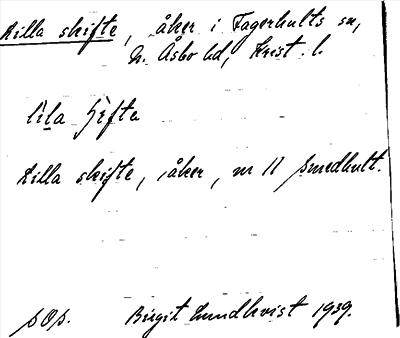 Lilla skifte, åker i Fagerhults sn,
N. Åsbo hd, Krist. l.
lila
Lilla skifte, åker, nr 11 Smedhult.
sOp. Birgit Lundkvist 1939.